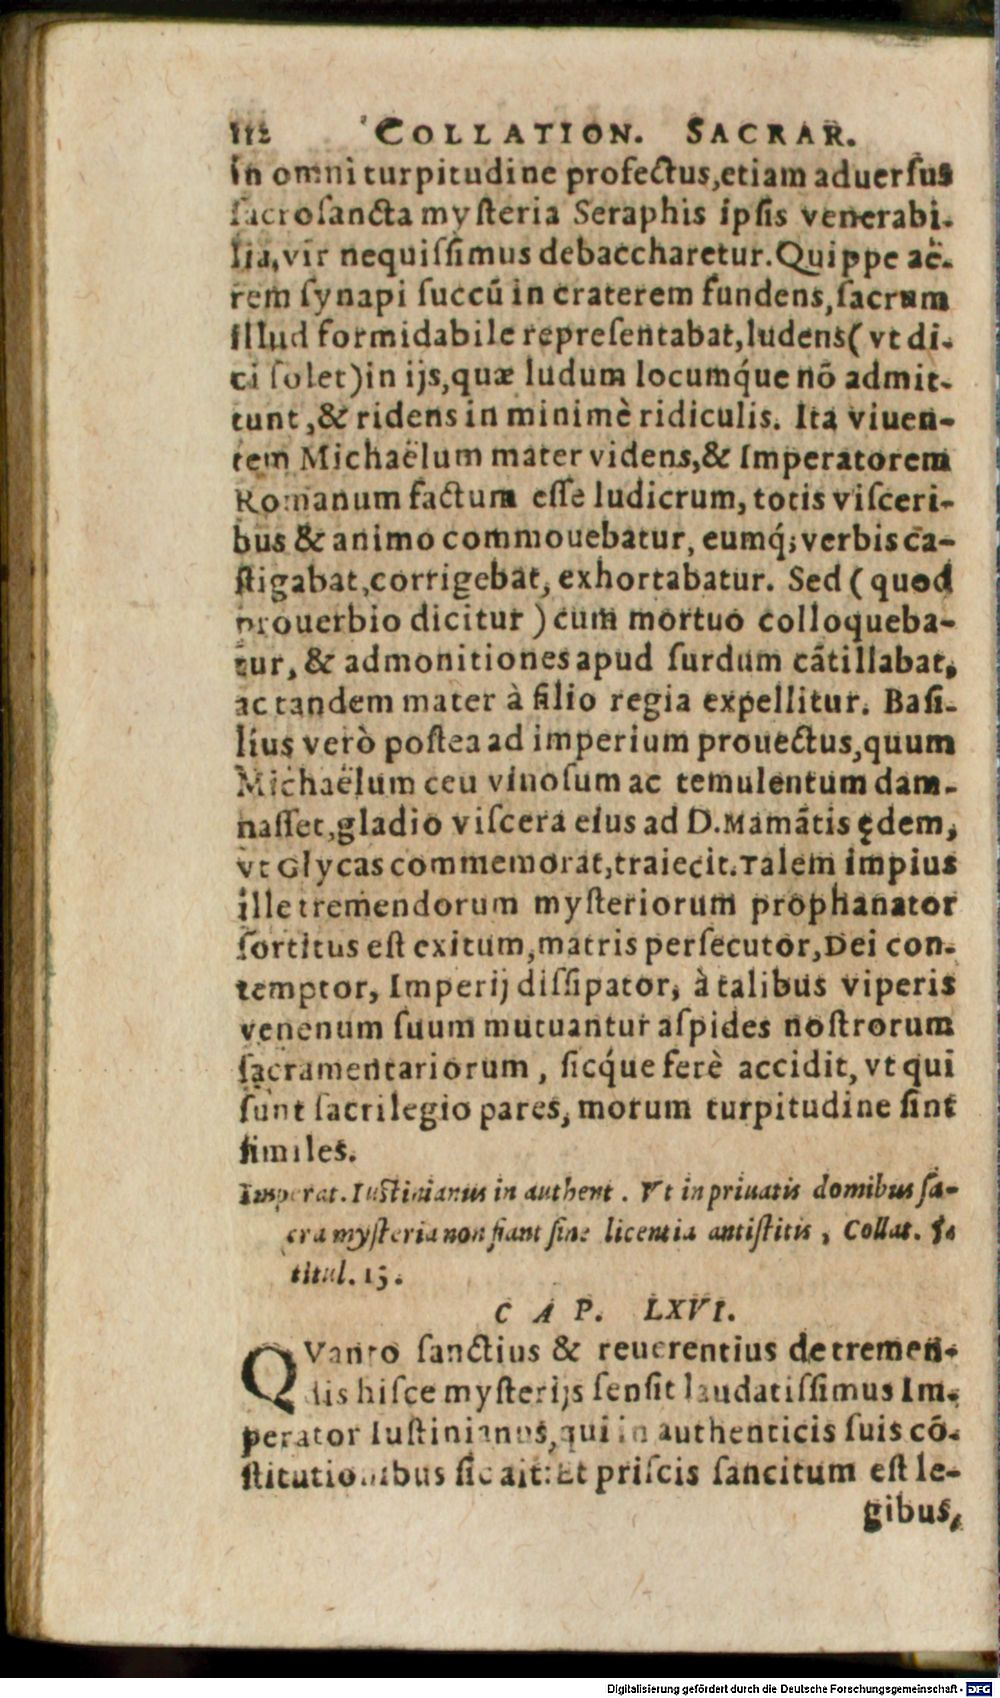 112 COLLATION. SACRAR.
in omni turpitudine profectus,etiam aduerſus
ſacroſancta myſteria Seraphis ipſis venerabi-
lia,vir nequiſſimus debaccharetur.Quippe ac̄-
rem ſynapi ſuccū in craterem fundens,ſacrum
illud formidabile repreſentabat,ludens( vt di-
ci ſolet)in ijs,quæ ludum locumq́ue nō admit-
tunt,& ridens in minimè ridiculis. Ita viuen-
tem Michaëlum mater videns,& Imperatorem
Romanum factum eſſe ludicrum, totis viſceri-
bus & animo commouebatur, eumq́; verbis ca-
ſtigabat,corrigebat, exhortabatur. Sed ( quod
prouerbio dicitur ) cum mortuo colloqueba-
tur, & admonitiones apud ſurdum cātillabat,
ac tandem mater à filio regia expellitur. Baſi-
lius verò poſtea ad imperium prouectus,quum
Michaëlum ceu vinoſum ac temulentum dam-
naſſet,gladio viſcera eius ad D.Mamātis ędem,
vt Glycas commemorat,traiecit.Talem impius
ille tremendorum myſteriorum prophanator
ſortitus eſt exitum,matris perſecutor,Dei con-
temptor, Imperij diſſipator, à talibus viperis
venenum ſuum mutuantur aſpides noſtrorum
ſacramentariorum , ſicq́ue ferè accidit, vt qui
ſunt ſacrilegio pares, morum turpitudine ſint
ſimiles.
Imperat. Iuſtinianus in authent. Vt in priuatis domibus ſa-
cra myſteria non fiant ſine licentia antiſtitis, Collat. 5.
titul. 13.
CAP. LXVI.
QVanto ſanctius & reuerentius de tremen-
dis hiſce myſterijs ſenſit laudatiſſimus Im-
perator Iuſtinianus,qui in authenticis ſuis cō-
ſtitutionibus ſic ait: Et priſcis ſancitum eſt le-
gibus,
Digitalisierung gefördert durch die Deutsche Forschungsgemeinschaft - DFG